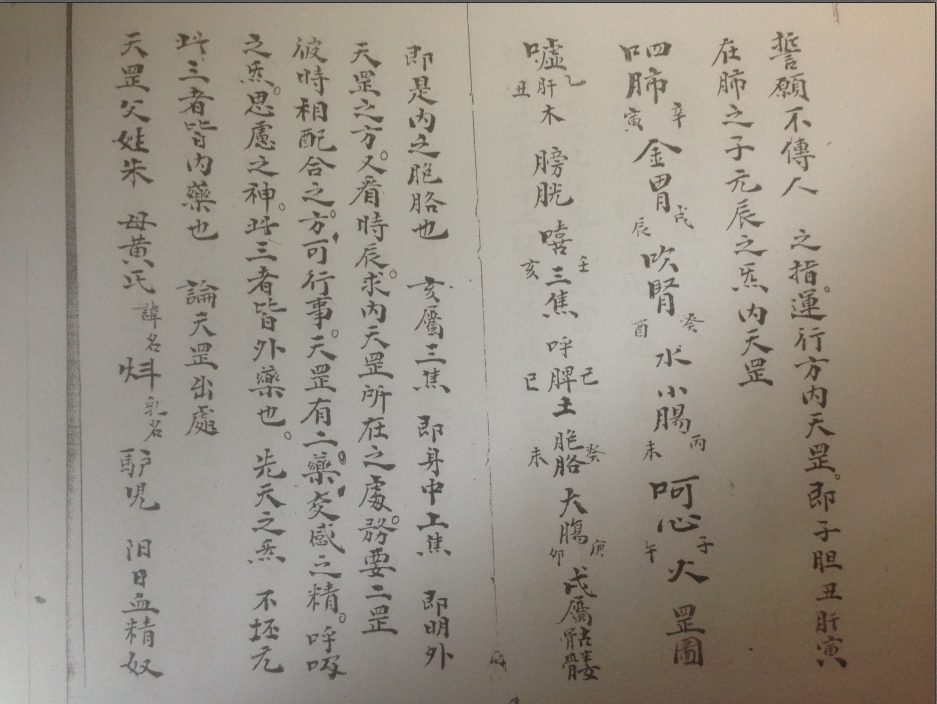 誓願不傳人 之指。運行方內天罡。即子胆丑肝寅
在肺之子元辰之炁內天罡
呬肺辛寅金胃戌辰吹腎癸酉水小腸丙未呵心子午火 罡圖
噓肝乙丑木 膀胱 嘻壬亥三焦 呼脾己巳土 胞胳癸未大腸庚卯戌屬骷髏
即是內之胞胳也 亥屬三焦 即身中上焦 即明外
天罡之方。又看時辰。求內天罡所在之處。務要二罡
彼時相配合之方。可行事。天罡有二藥。交感之精。呼吸
之炁。思慮之神。此三者皆外藥也。先天之炁 不坯元
此三者皆內藥也 論天罡出處
天罡父姓朱 母黃氏 諱名 乳名 驴児 汨日血精奴